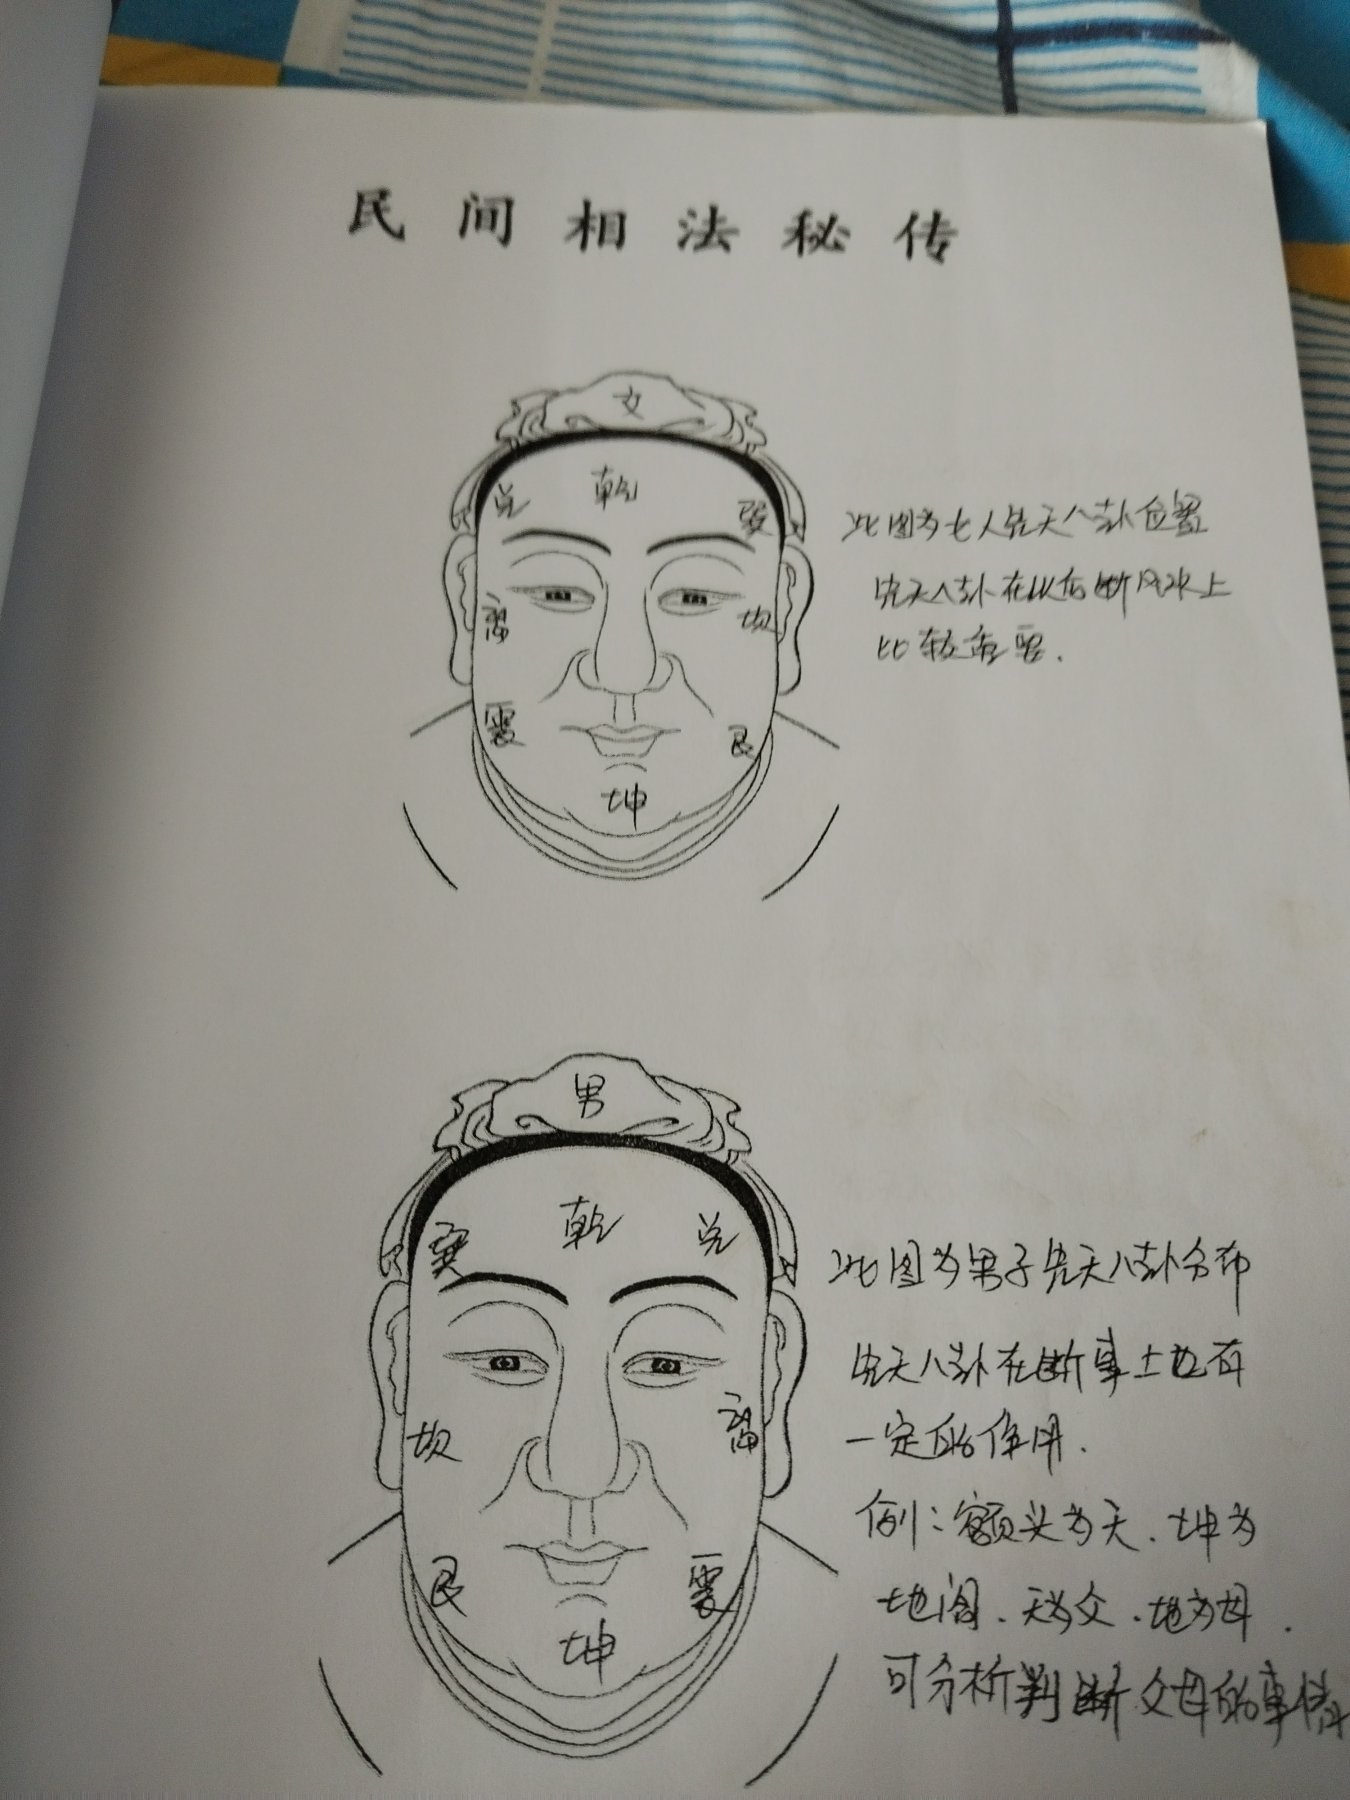 民间相法秘传
女
兑 乾 巽
离 坎
震 艮
坤
此图为女人先天八卦位置
先天八卦在以后断风水上
比较重要.
男
巽 乾 兑
坎 离
艮 震
坤
此图为男子先天八卦分布
先天八卦在断事上也有
一定的作用.
例:额头为天、坤为
地阁、天为父、地为母.
可分析判断父母的事情